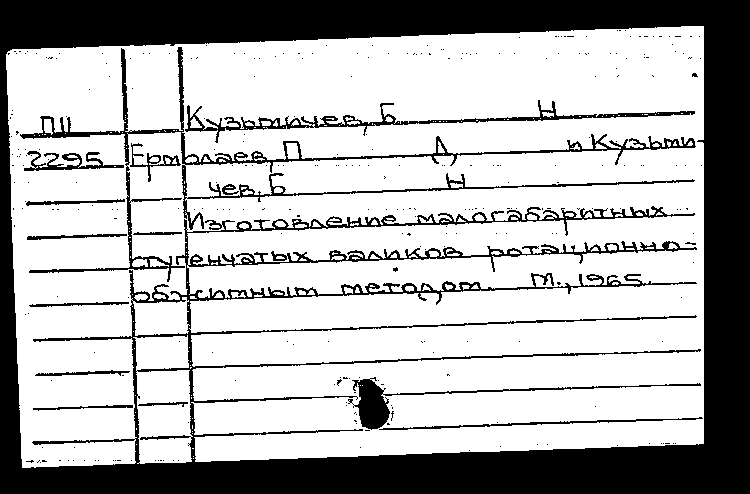 ПII Кузьмичев, Б Н
2295 Ермолаев, П Д, и Кузьми-
чев, Б Н
Изготовление малогабаритных
ступенчатых валиков ротационно-
обжимным методом. М., 1965.